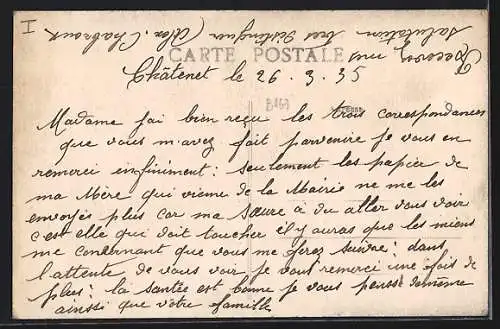 I
CARTE POSTALE
Châtenet le 26.3.35
Madame jai bien reçu les trois correspondances
que vous m'avez fait parvenire je vous en
remerci infiniment : seulement les papier de
ma Mère qui vienne de la Mairie ne me les
envoyés plus car ma Sœure à du aller vous voir
c'est elle qui doit toucher il y auras que les miens
me concernant que vous me ferez suivre : dans
l'attente de vous voir je vous remerci une fois de
plus : la santée est bonne je vous pense de même
ainsi que votre famille
Recevez mes
salutation tres distinguer